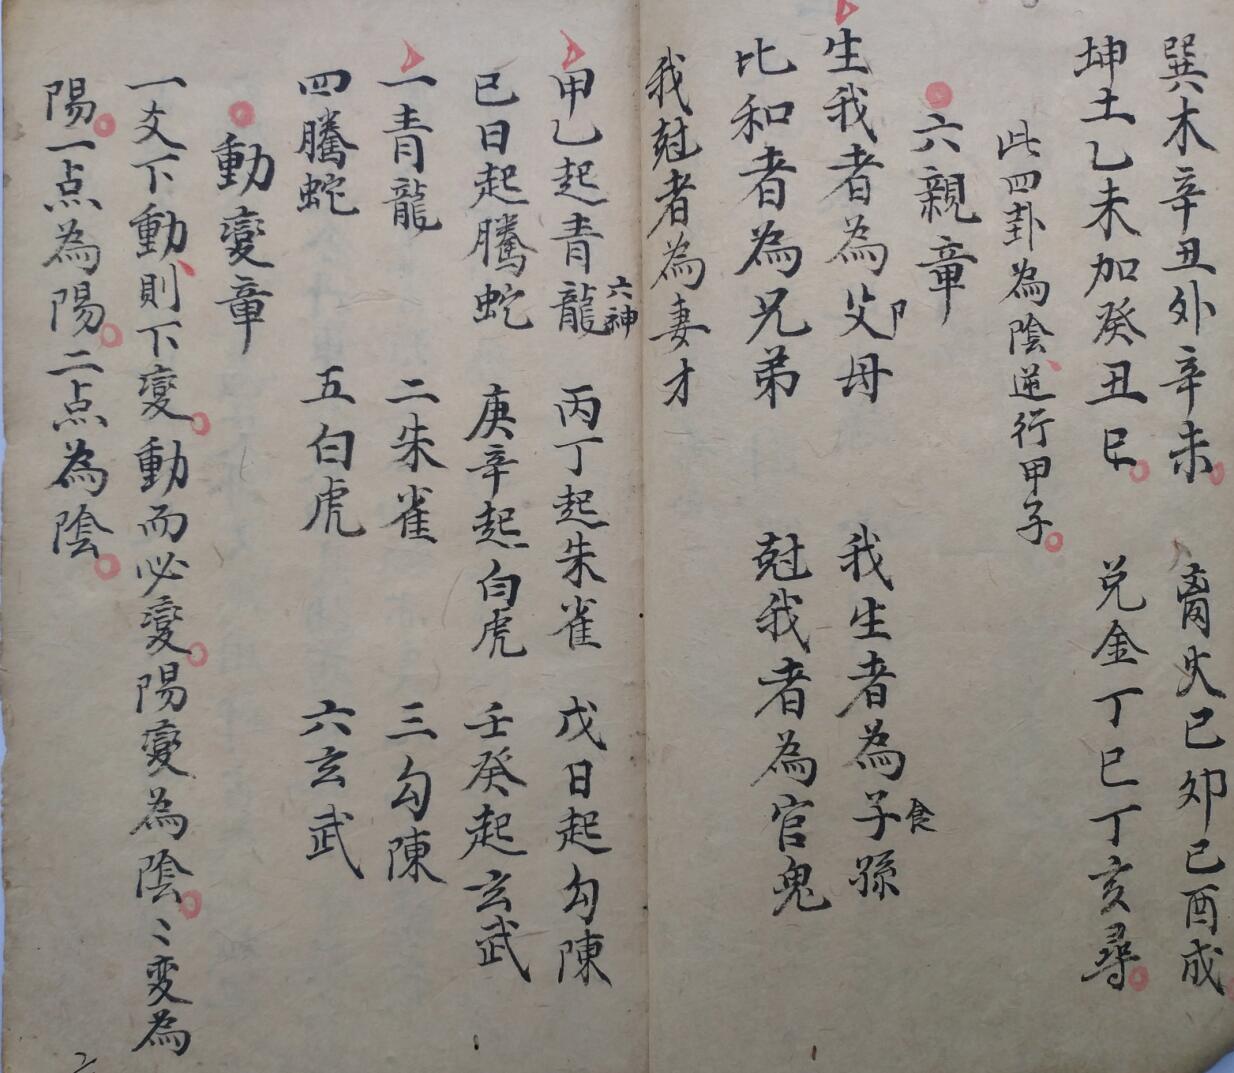 巽木辛丑外辛未 离火己卯己酉成
坤土乙未加癸丑已 兑金丁巳丁亥尋
此四卦為陰逆行甲子
六親章
生我者為父卩母 我生者為子食孫
比和者為兄弟 尅我者為官鬼
我尅者為妻才
甲乙起青龍六神 丙丁起朱雀 戊日起勾陳
已日起騰蛇 庚辛起白虎 壬癸起玄武
一青龍 二朱雀 三勾陳
四騰蛇 五白虎 六玄武
動變章
一爻下動則下變動而必變陽變為陰〻变為
陽一点為陽二点為陰